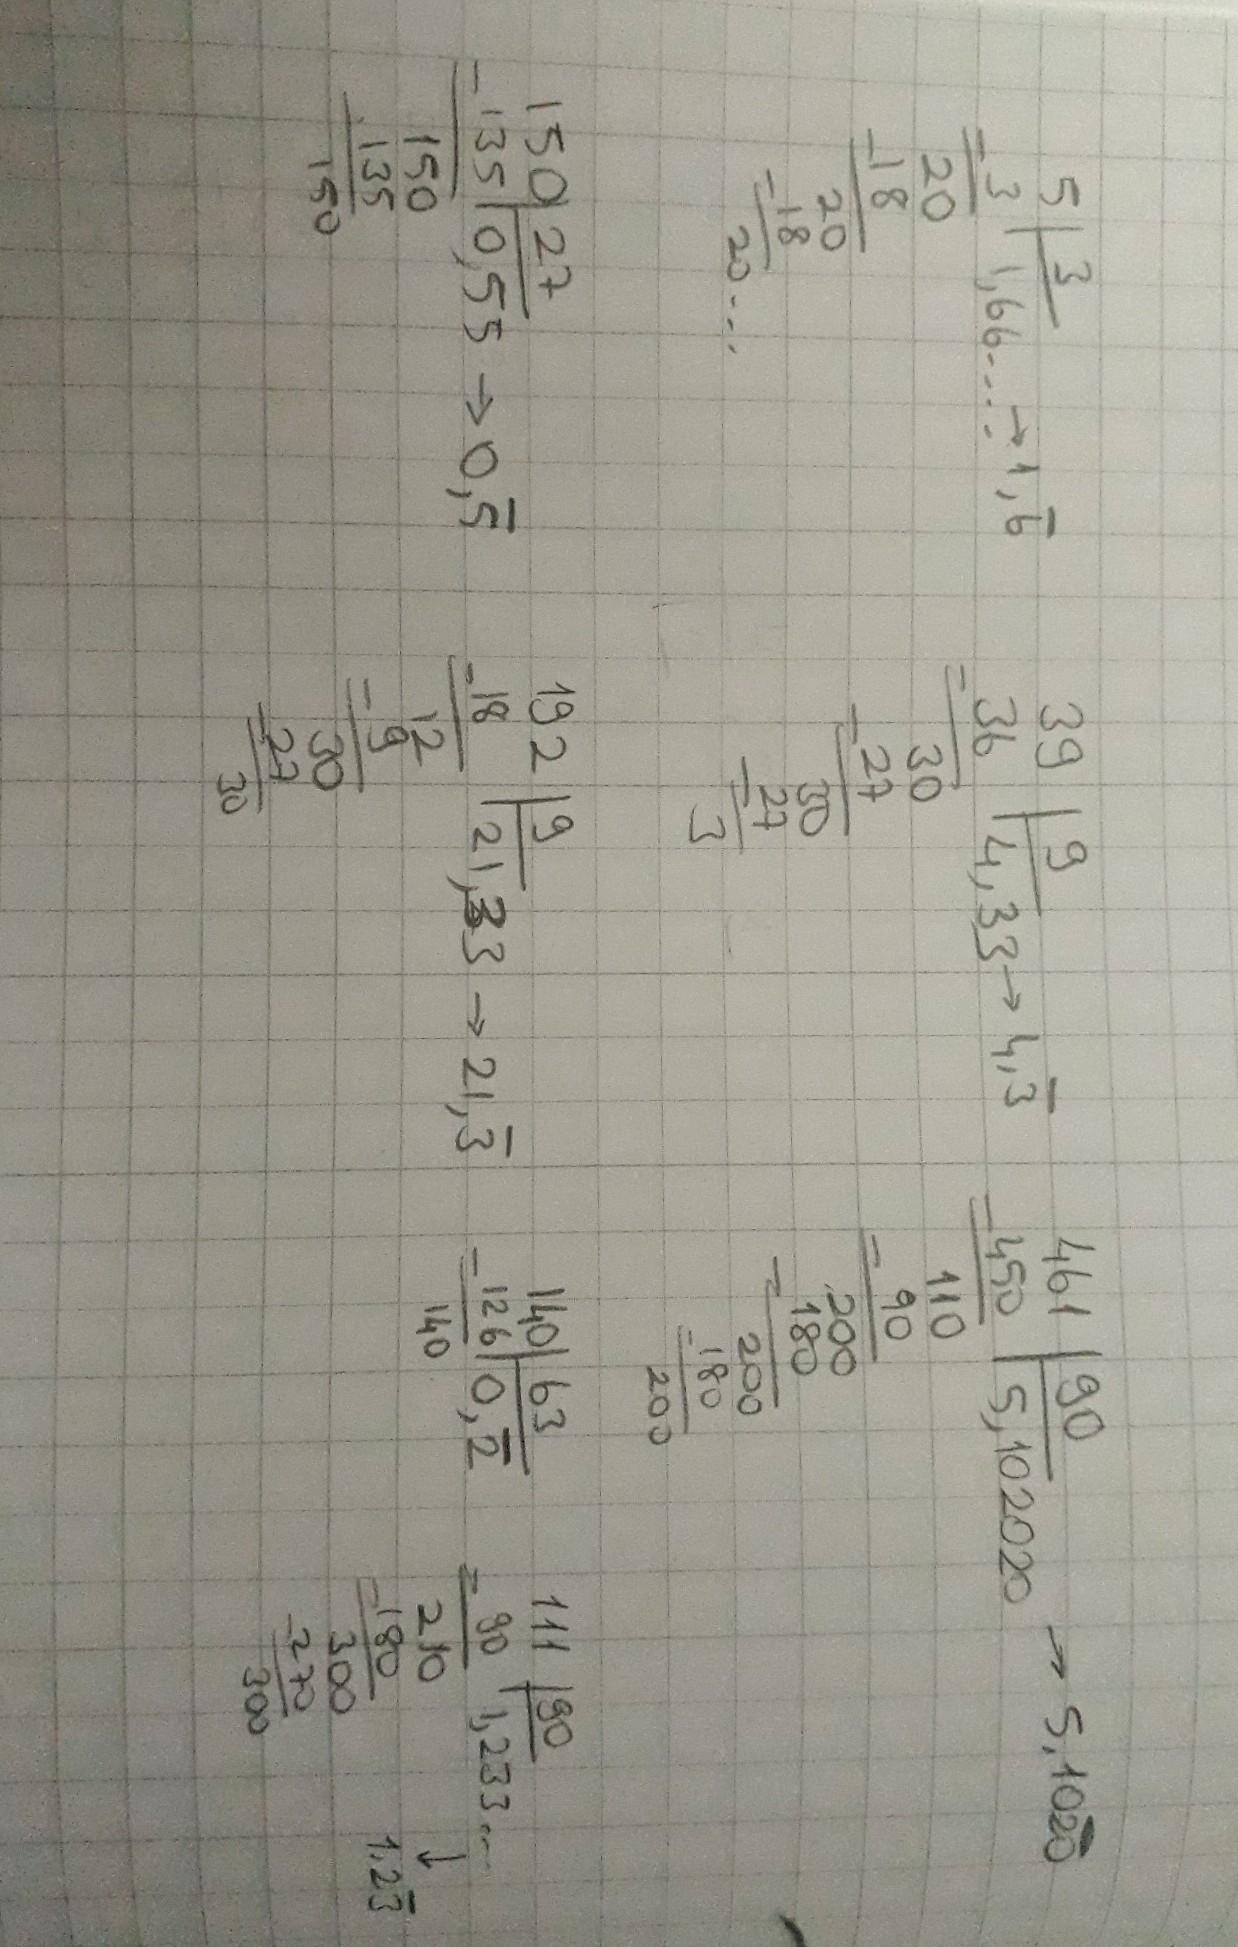 5 | 3
-3 1,66.... → 1,6̅
20
-18
20
-18
20....
39 | 9
-36 4,33 → 4,3̅
30
-27
30
-27
3
461 | 90
-450 5,102020 → 5,1020
110
-90
200
-180
200
-180
200
150 | 27
-135 0,55 → 0,5̅
150
-135
150
192 | 9
-18 21,33 → 21,3̅
12
-9
30
-27
30
140 | 63
-126 0,2̅
140
111 | 90
-90 1,233...
210 ↓
-180 1,23̅
300
-270
300